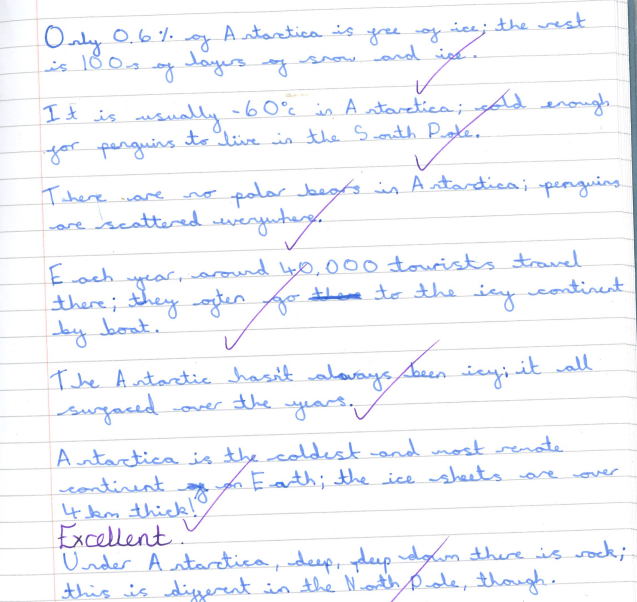 Only 0.6% of Antarctica is free of ice; the rest
is 100s of layers of snow and ice.
It is usually -60°c in Antarctica; cold enough
for penguins to live in the South Pole.
There are no polar bears in Antarctica; penguins
are scattered everywhere.
Each year, around 40,000 tourists travel
there; they often go to the icy continent
by boat.
The Antarctic hasn't always been icy; it all
surfaced over the years.
Antarctica is the coldest and most remote
continent on Earth; the ice sheets are over
4km thick!
Excellent.
Under Antarctica, deep, deep down there is rock;
this is different in the North Pole, though.